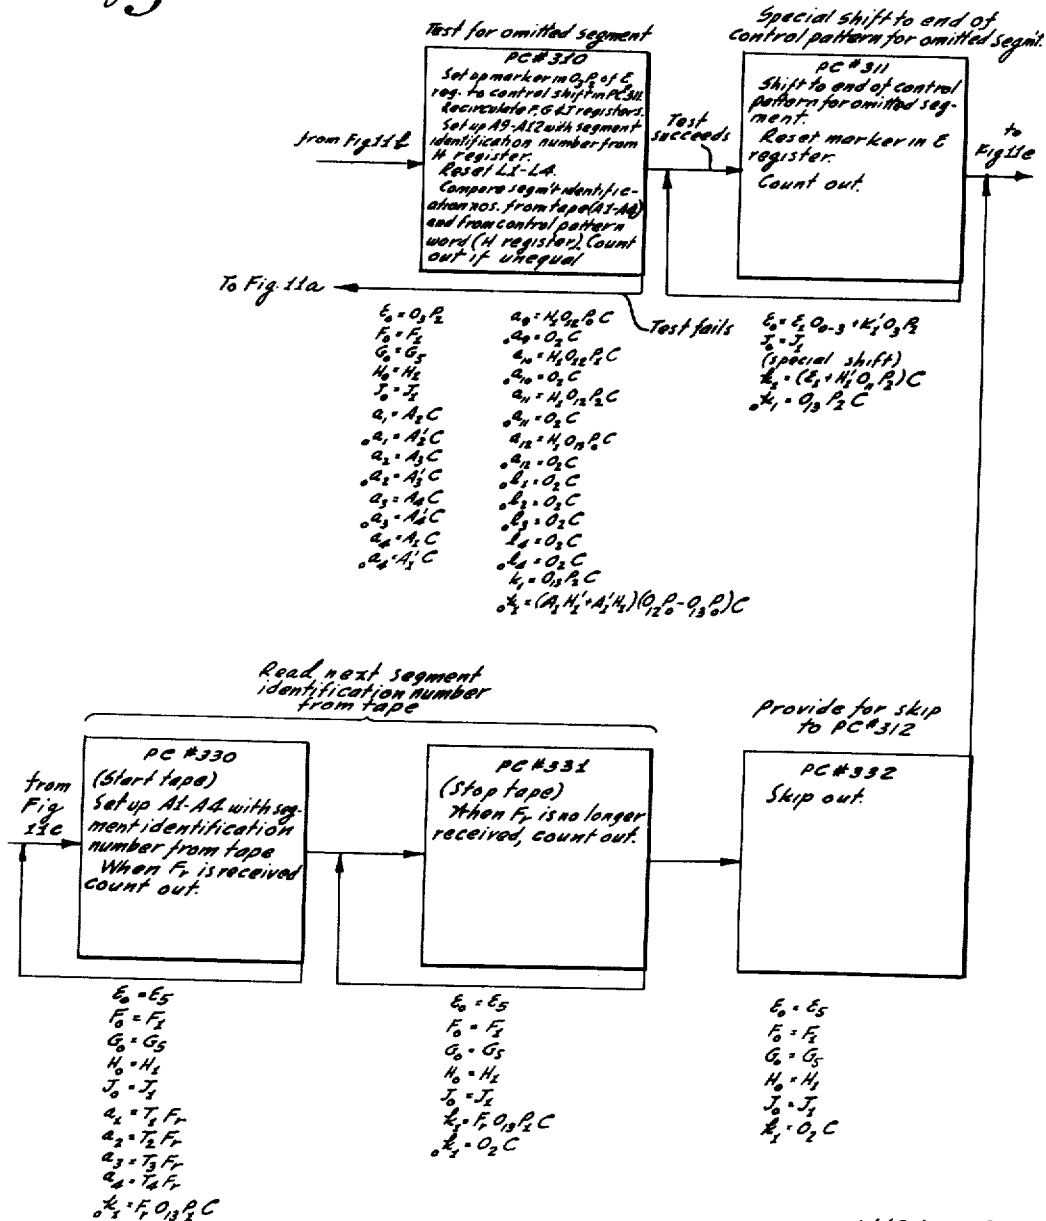 Test for omitted segment
PC#310
Set up marker in O₃P₂ of E
reg. to control shift in PC311.
Recirculate F, G & J registers.
Set up A9-A12 with segment
identification number from
H register.
Reset L1-L4.
Compare segm't identific-
ation nos. from tape (A1-A4)
and from control pattern
word (H register). Count
out if unequal
Special Shift to end of
control pattern for omitted segm't.
PC#311
Shift to end of control
pattern for omitted seg-
ment.
Reset marker in E
register.
Count out.
from Fig 11b
Test
succeeds
to
Fig 11e
To Fig. 11a
Test fails
E₀ = O₃P₂
F₀ = F₁
G₀ = G₅
H₀ = H₁
J₀ = J₁
a₁ = A₂C
₀a₁ = A₂'C
a₂ = A₃C
₀a₂ = A₃'C
a₃ = A₄C
₀a₃ = A₄'C
a₄ = A₁C
₀a₄ = A₁'C
a₉ = H₁O₁₂P₀C
₀a₉ = O₂C
a₁₀ = H₁O₁₂P₁C
₀a₁₀ = O₂C
a₁₁ = H₁O₁₂P₂C
₀a₁₁ = O₂C
a₁₂ = H₁O₁₃P₀C
₀a₁₂ = O₂C
₀l₁ = O₂C
₀l₂ = O₂C
₀l₃ = O₂C
l₄ = O₂C
₀l₄ = O₂C
k₁ = O₁₃P₂C
₀k₁ = (A₁H₁' + A₁'H₁)(O₁₂P₀ - O₁₃P₀)C
E₀ = E₁O₀₋₃ + K₁'O₃P₂
J₀ = J₁
(special shift)
k₁ = (E₁ + H₁'OₙP₂)C
₀k₁ = O₁₃P₂C
Read next segment
identification number
from tape
PC #330
(Start tape)
Set up A1-A4 with seg-
ment identification
number from tape
When Fᵣ is received
count out.
from
Fig
11c
PC #331
(Stop tape)
When Fᵣ is no longer
received, count out.
Provide for skip
to PC#312
PC#332
Skip out.
E₀ = E₅
F₀ = F₁
G₀ = G₅
H₀ = H₁
J₀ = J₁
a₁ = T₁Fᵣ
a₂ = T₂Fᵣ
a₃ = T₃Fᵣ
a₄ = T₄Fᵣ
₀k₁ = FᵣO₁₃P₂C
E₀ = E₅
F₀ = F₁
G₀ = G₅
H₀ = H₁
J₀ = J₁
k₁ = FᵣO₁₃P₂C
₀k₁ = O₂C
E₀ = E₅
F₀ = F₁
G₀ = G₅
H₀ = H₁
J₀ = J₁
k₁ = O₂C